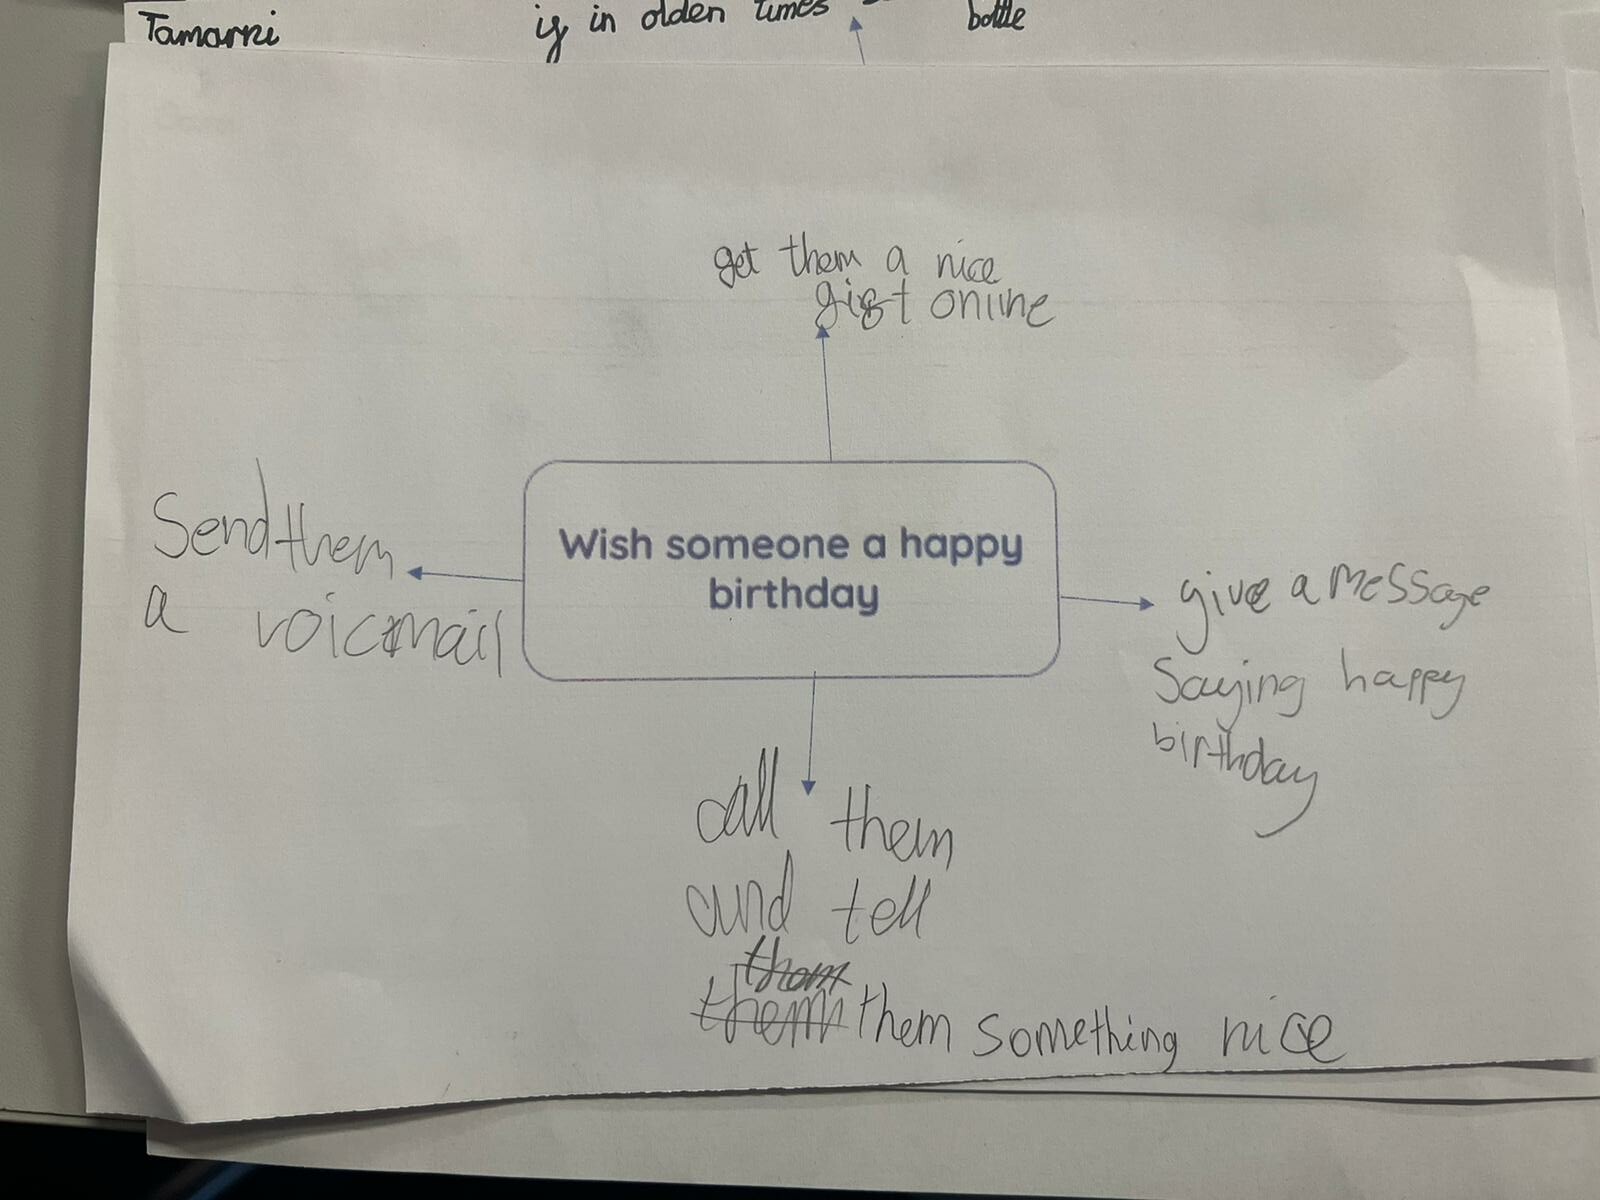 Tamarni
if in olden times
bottle
get them a nice
gift online
Send them
a voicmail
Wish someone a happy
birthday
give a message
Saying happy
birthday
call them
and tell
them
them them something nice